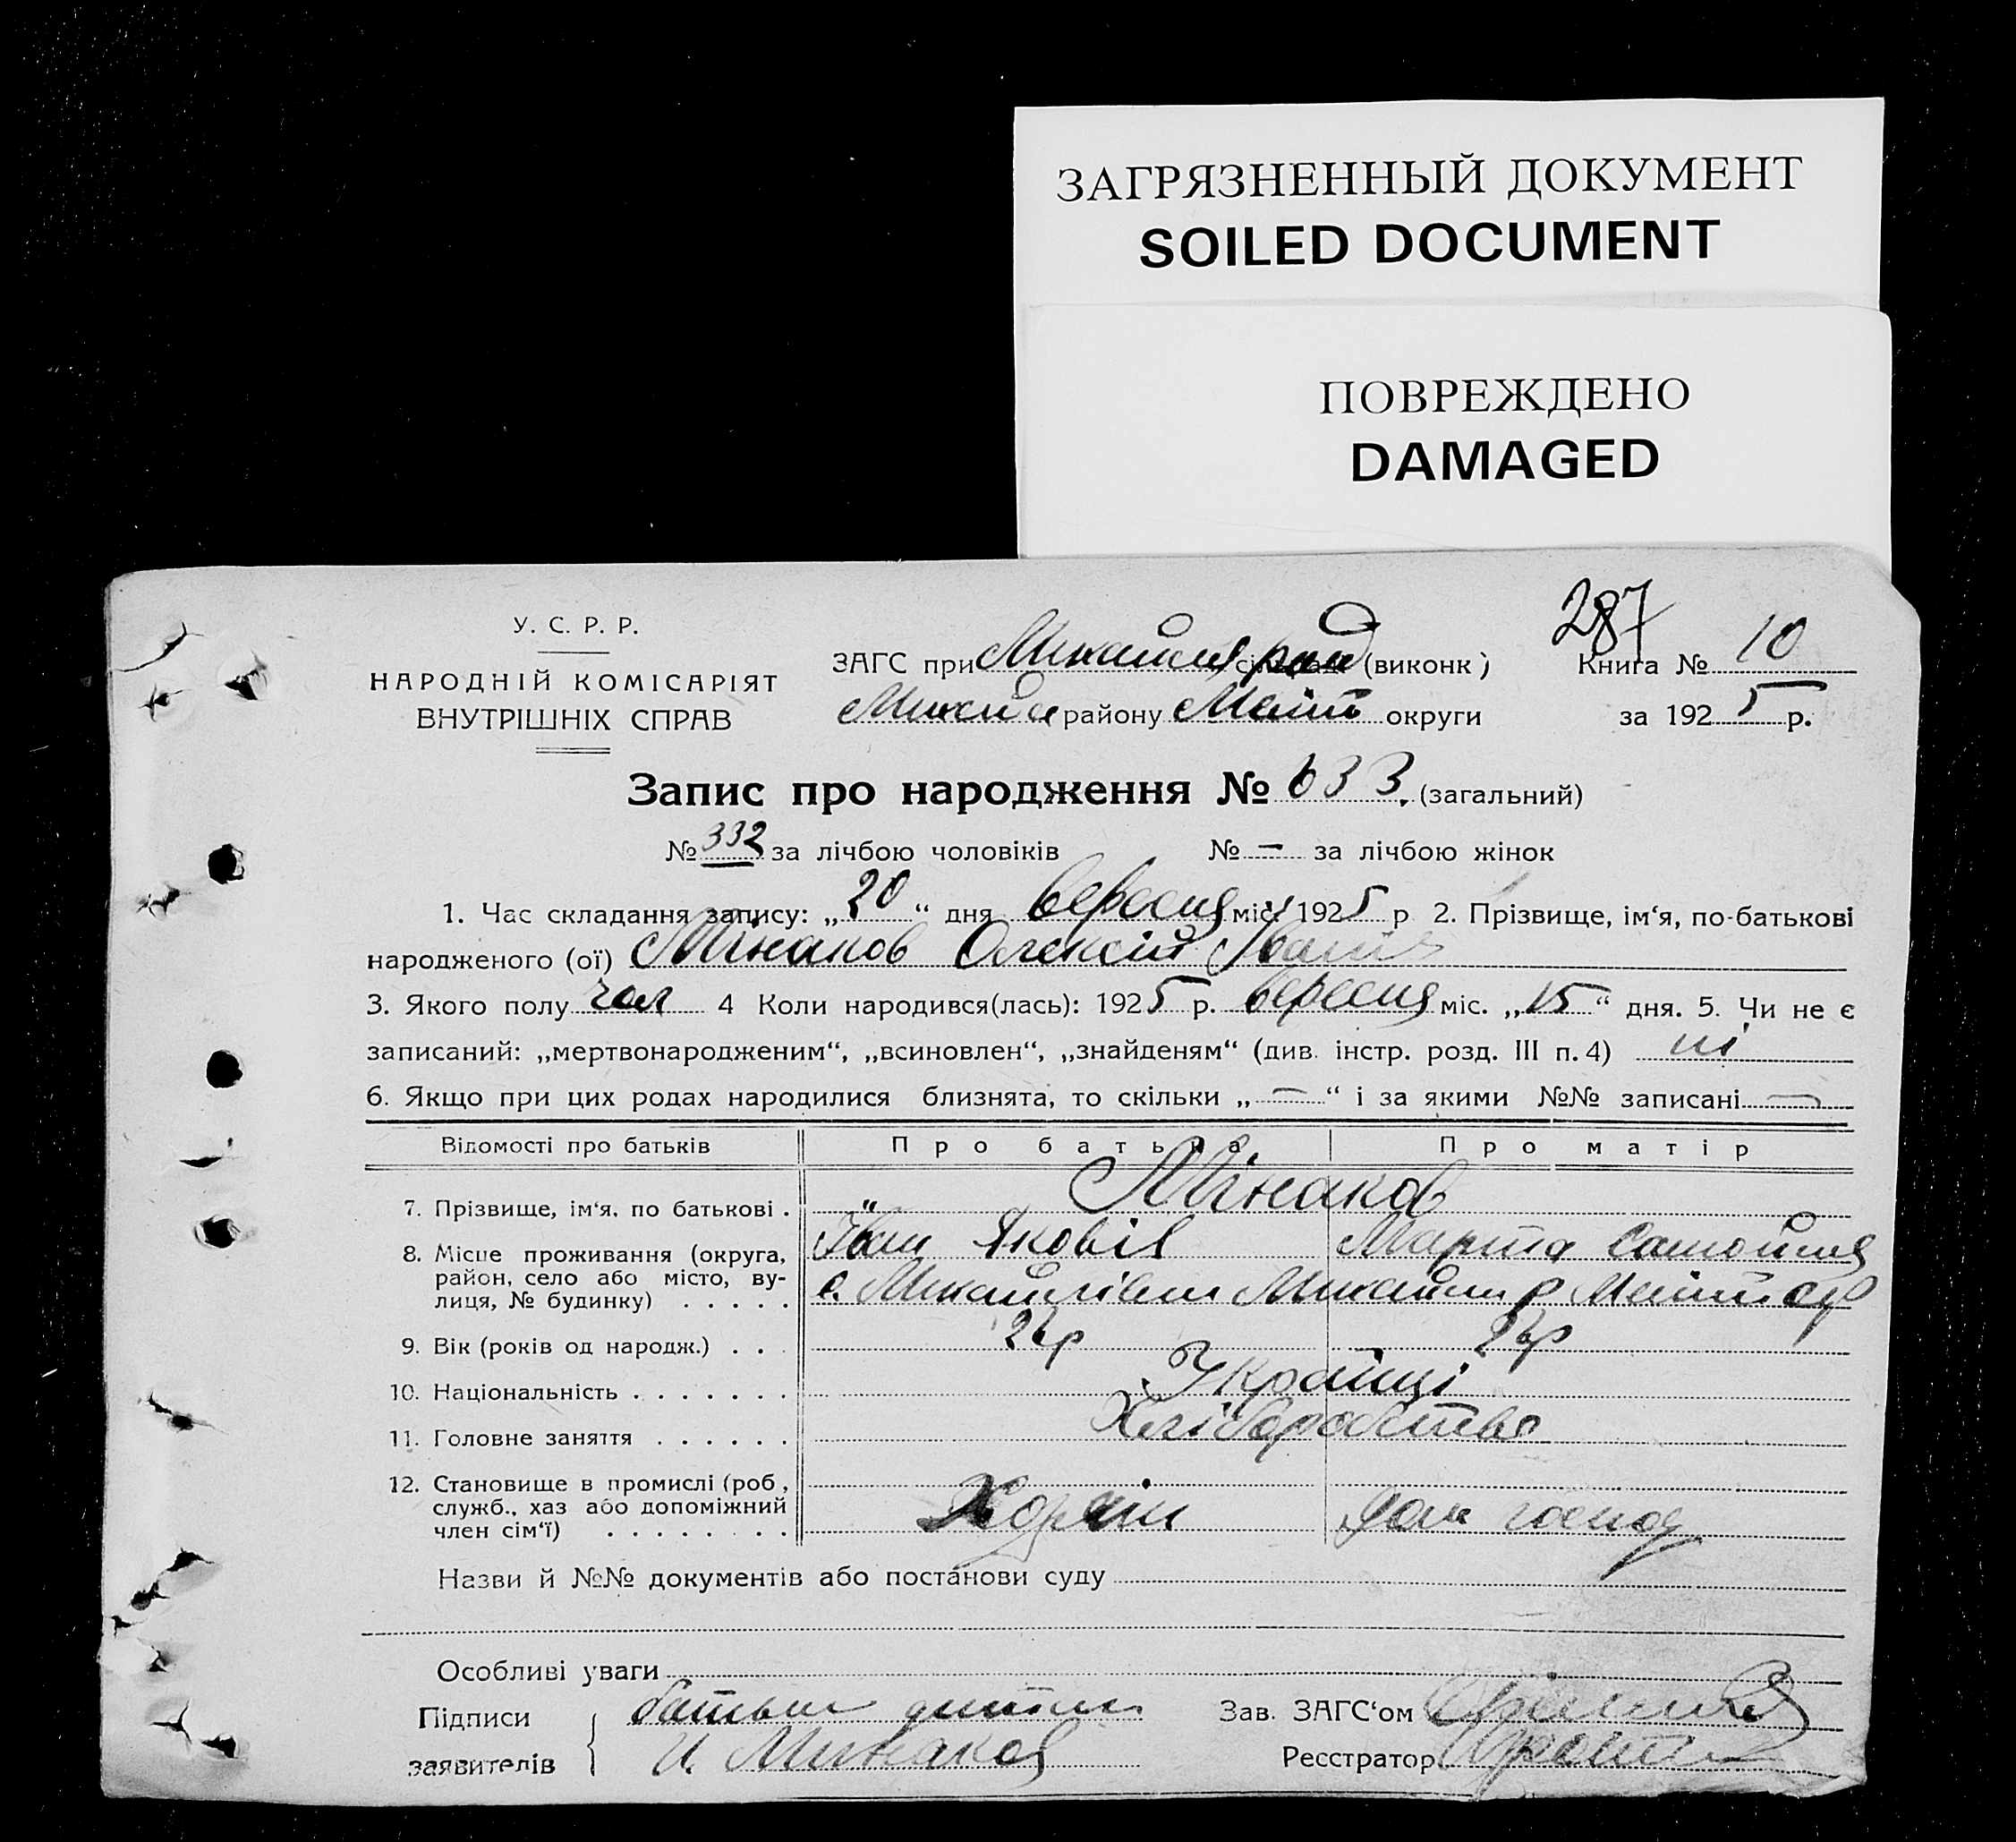 ЗАГРЯЗНЕННЫЙ ДОКУМЕНТ
SOILED DOCUMENT
ПОВРЕЖДЕНО
DAMAGED
287
У. С. Р. Р.
НАРОДНІЙ КОМІСАРІЯТ
ВНУТРІШНІХ СПРАВ
ЗАГС при (виконк)
району округи
Книга № 10
за 1925 р.
Запис про народження № 633 (загальний)
№ 332 за лічбою чоловіків № — за лічбою жінок
1. Час складання запису: „20“ дня вересня міс. 1925 р 2. Прізвище, ім‘я, по-батькові
народженого (ої) Мінаков Олексій Іван
3. Якого полу чол 4 Коли народився(лась): 1925 р. вересня міс. „15“ дня. 5. Чи не є
записаний: „мертвонародженим“, „всиновлен“, „знайденям“ (див. інстр. розд. III п. 4) ні
6. Якщо при цих родах народилися близнята, то скільки „—“ і за якими №№ записані —
Відомості про батьків Про батька Про матір
7. Прізвище, ім‘я, по батькові . Мінаков
Іван Яковів Марта
8. Місце проживання (округа, район, село або місто, вулиця, № будинку) . . . . . с.
9. Вік (років од народж.) . . .
10. Національність . . . . . . . Українці
11. Головне заняття . . . . . . Хліборобство
12. Становище в промислі (роб, служб., хаз або допоміжний член сім‘ї) . . . . . . . . дом господ
Назви й №№ документів або постанови суду
Особливі уваги
Підписи заявителів батько дитини
И. Минаков
Зав. ЗАГС‘ом
Реєстратор